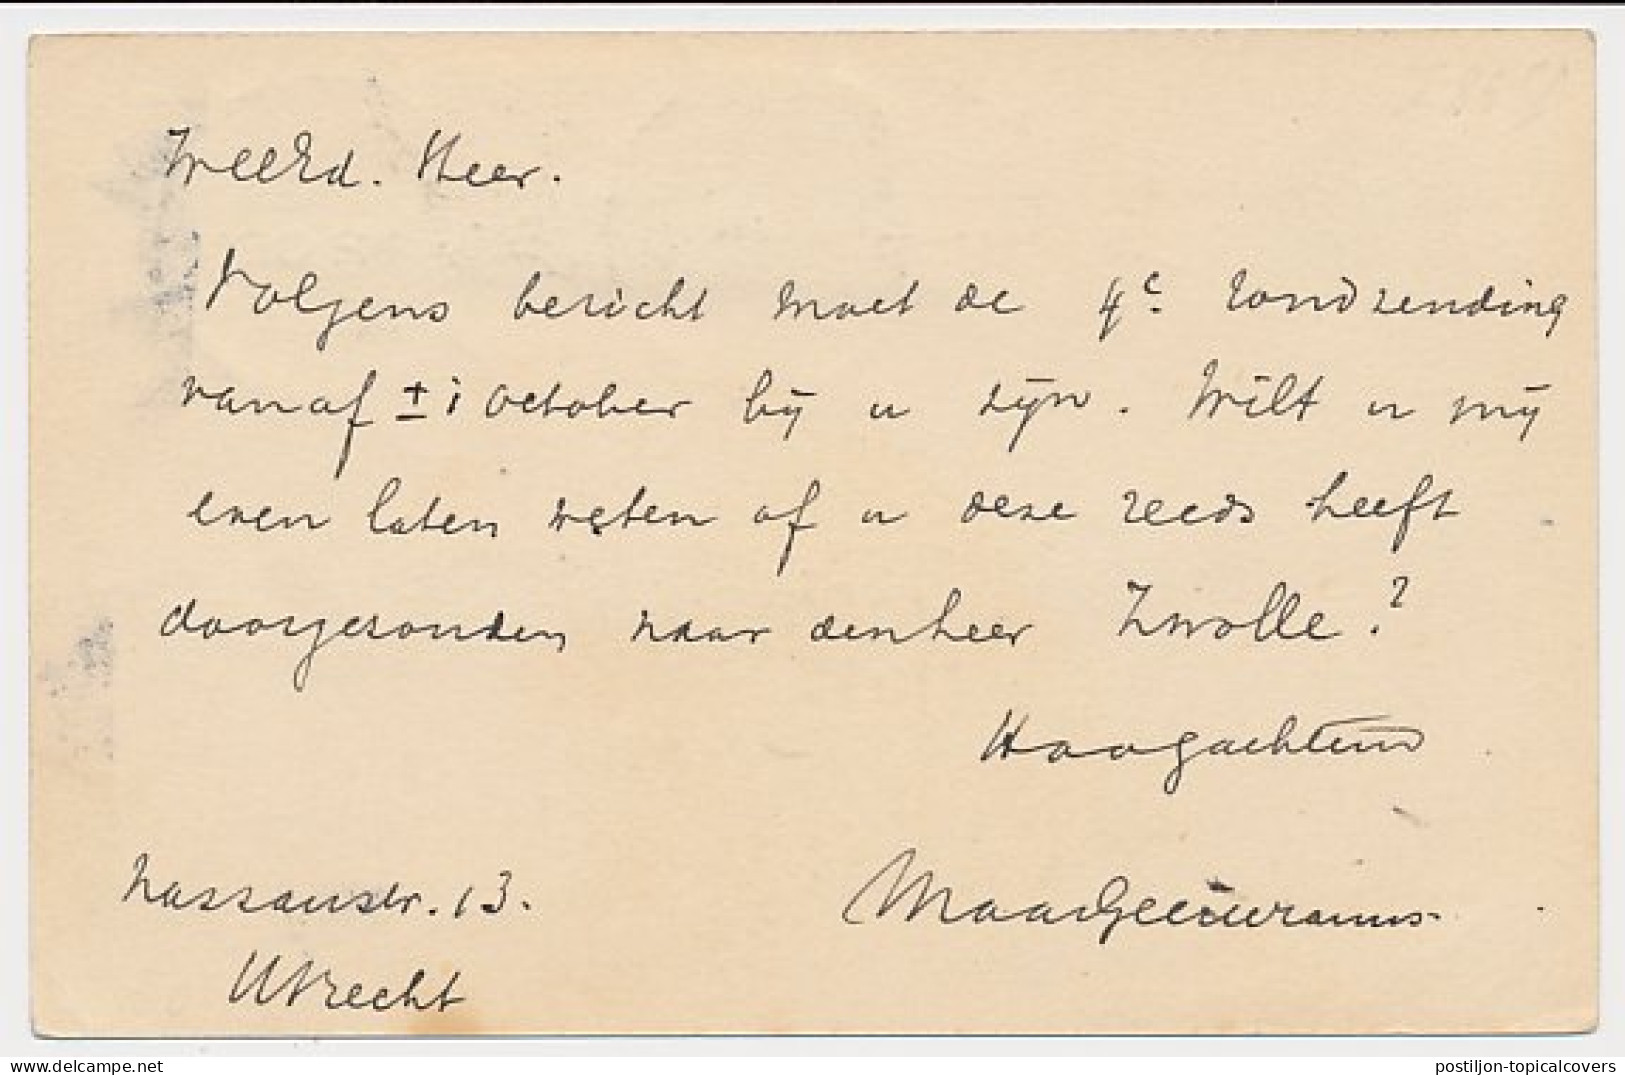 WelEd. Heer.
Volgens bericht moet de 4e rondzending
vanaf ± 1 october bij u zijn. Wilt u mij
even laten weten of u deze reeds heeft
doorgezonden naar den heer Zwolle?
Hoogachtend
Nassaustr. 13.
Utrecht
postiljon-topicalcovers